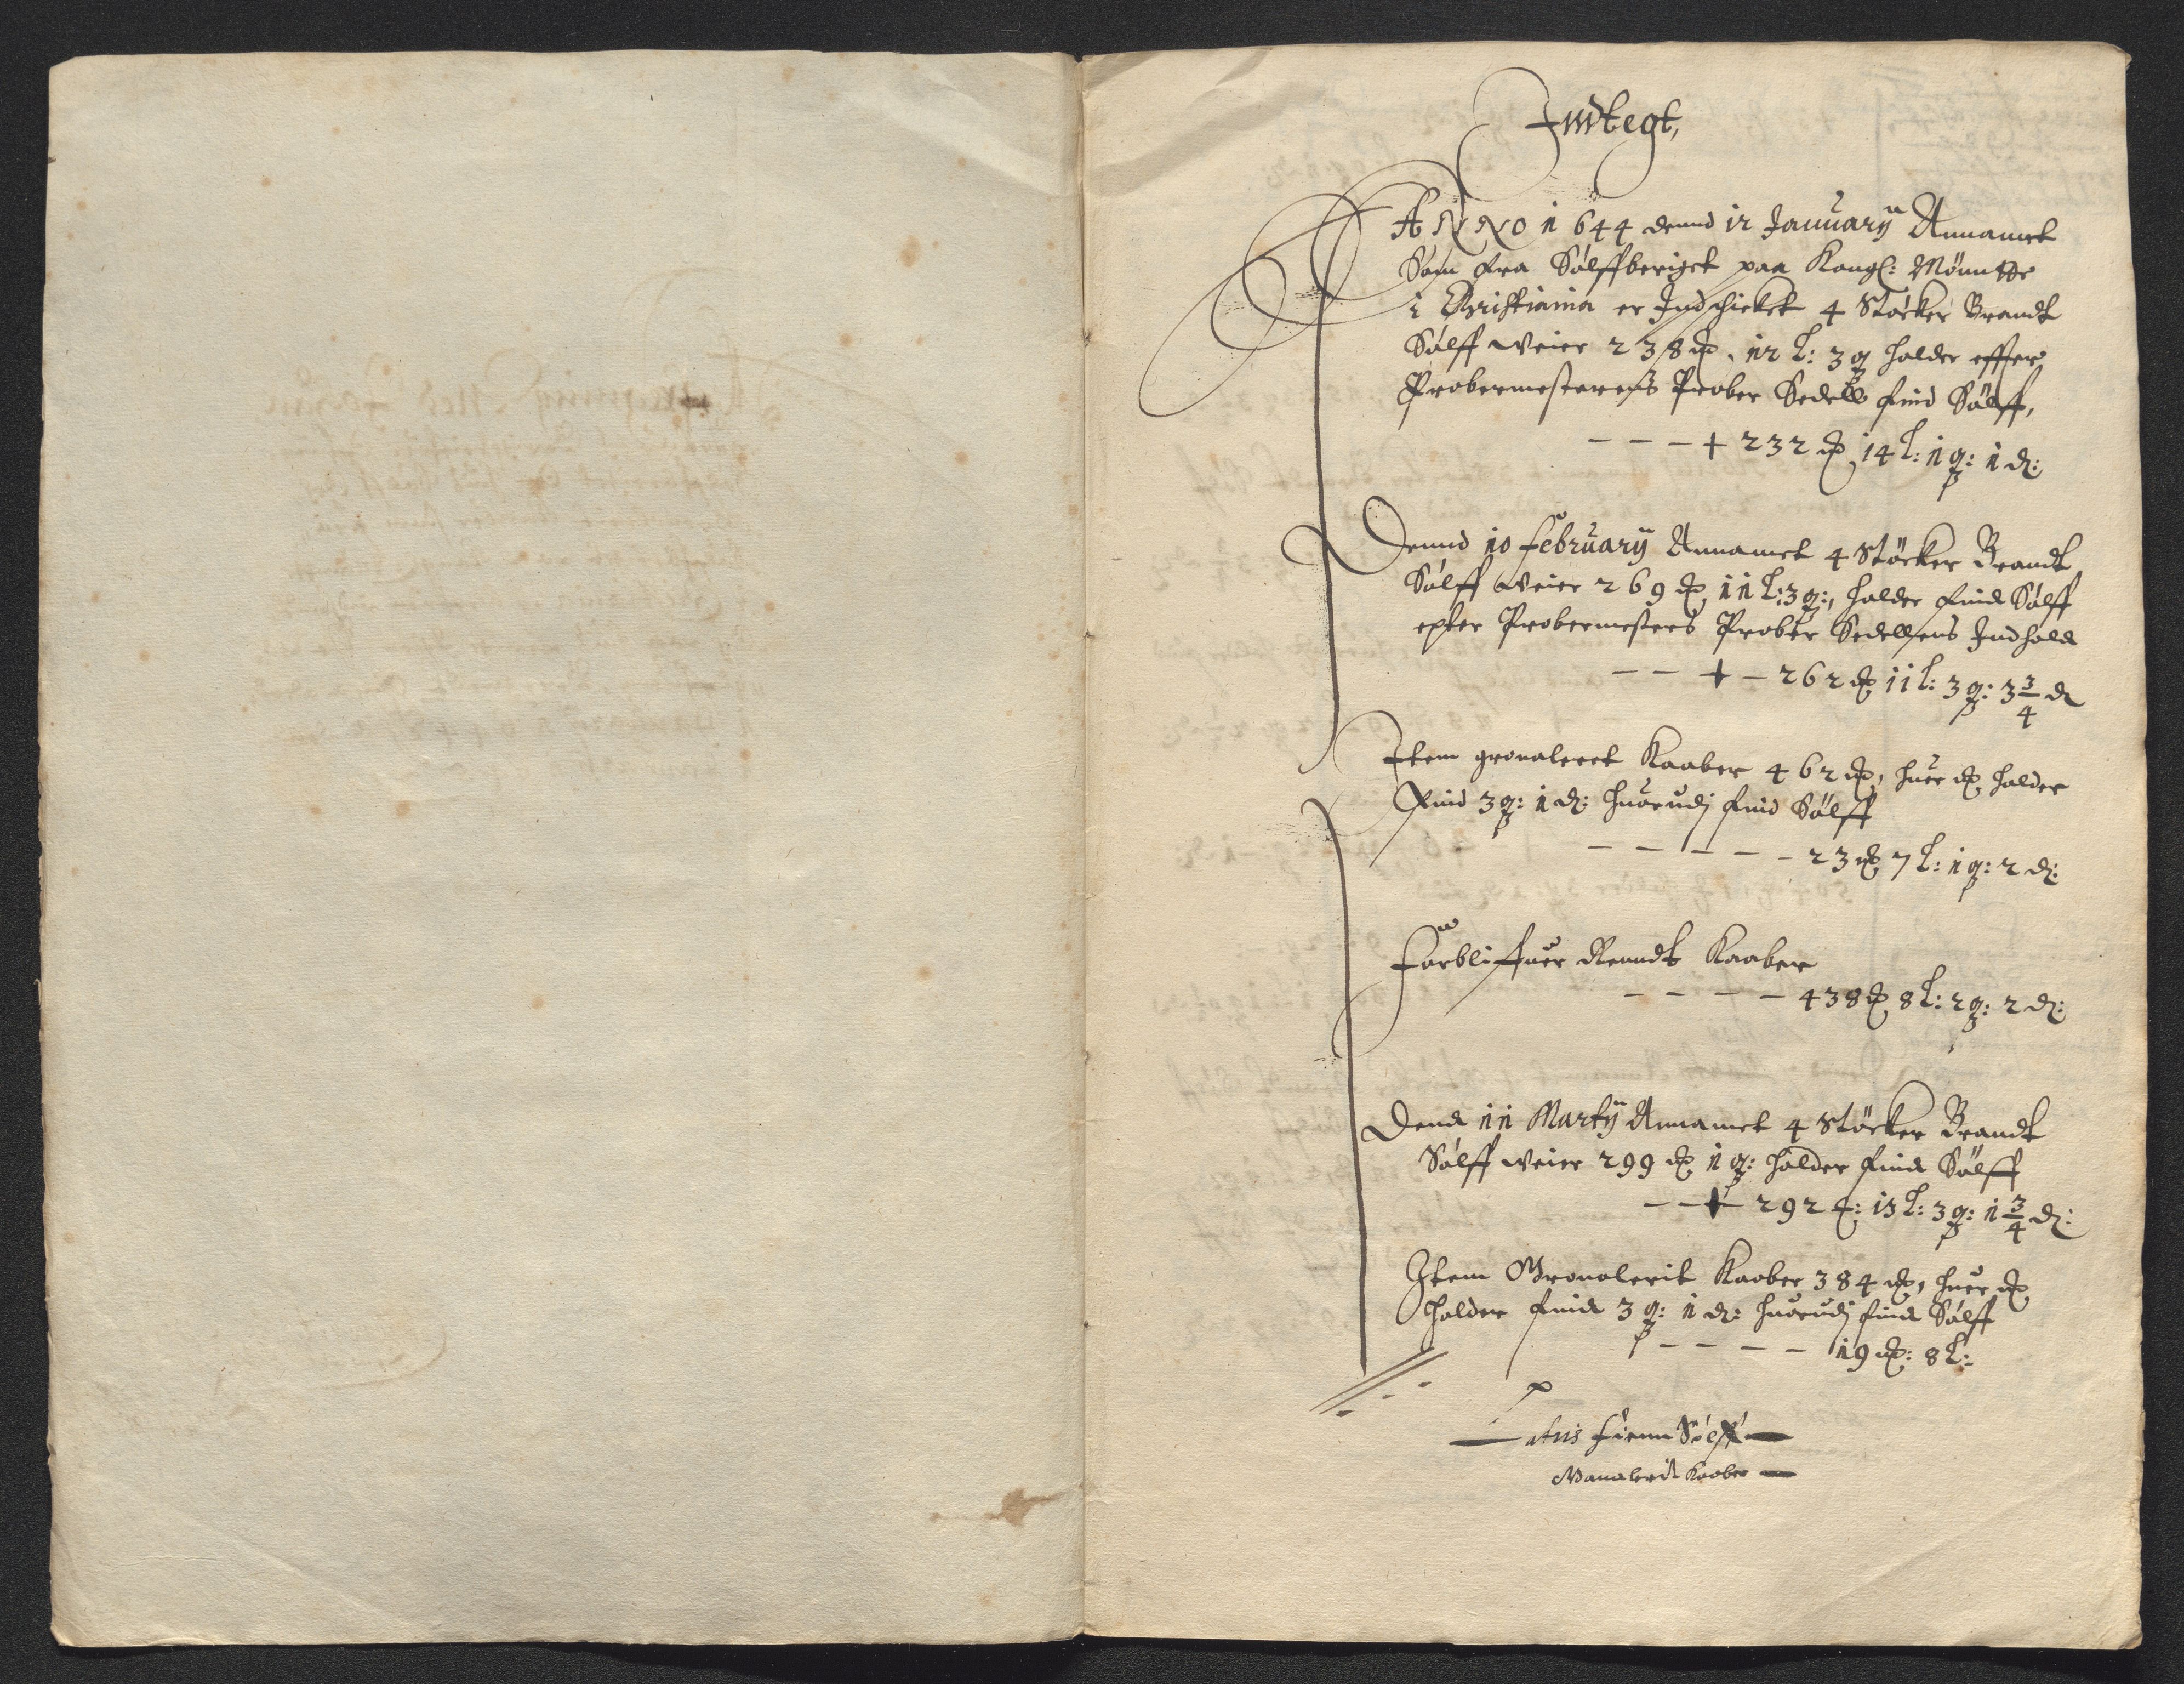 Indtegt,
ANNO 1644 dennd 12 January Annamet
Som fra Sølffberiget paa Kongl: Mønntte
i Christiania er Indschicket 4 Støcker Brandt
Sølff weier 238 ₰ 12 l: 3 q holder effter
Probermesterens Prober Sedell find Sølff,
– – – + 232 ₰ 14 l: 1 q: 1 d:
Dennd 10 February Annamet 4 Støcker Brandt
Sølff weier 269 ₰ 11 l: 3 q:, holder find Sølff
epter Probermesters Prober Sedellens Indhold
– – + – 262 ₰ 11 l: 3 q: 3 3/4 d
Item granaleret Kaaber 462 ₰, huer ₰ holder
find 3 q: 1 d: huorudj find Sølff
– – – – – 23 ₰ 7 l: 1 q: 2 d:
Forbliffuer Renndt Kaaber
– – – – 438 ₰ 8 l: 2 q: 2 d:
Dend 11 Marty Annamet 4 Støcker Brandt
Sølff weier 299 ₰ 1 q: holder find Sølff
– – + – 292 ₰: 13 l: 3 q: 1 3/4 d:
Item Granalerit Kaaber 384 ₰, huer ₰
holder find 3 q: 1 d: huorudj find Sølff
– – – – 19 ₰: 8 l:
Latus fienn Sølff —
Granalerit Kaaber —